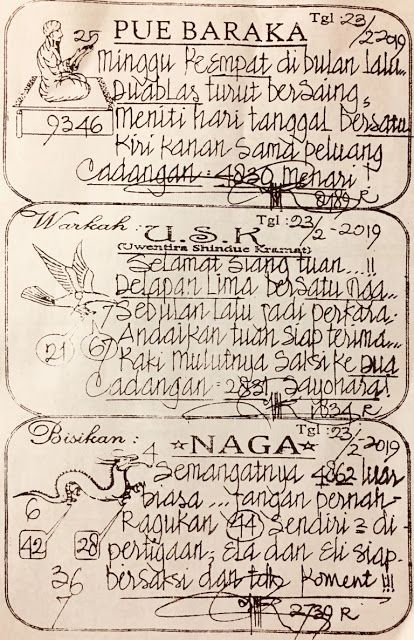 PUE BARAKA
Tgl : 23/2-2019
25
9346
Minggu Keempat di bulan lalu...
Duablas turut bersaing,
Meniti hari tanggal bersatu
Kiri kanan sama peluang
Cadangan : 4830 Menari
Warkah :
U.S.K
(Uwentira Shindue Kramat)
Tgl : 23/2-2019
Selamat siang tuan...!!
Delapan Lima bersatu nga...
Sebulan lalu jadi perkara.
Andaikan tuan siap terima...
Kaki mulutnya saksi ke Dua
Cadangan : 2831 Sayohara!
21
67
1834 R
Bisikan :
☆NAGA☆
Tgl : 23/2-2019
4
6
42
28
36
7
Semangatnya 4862 luar
biasa... tangan pernah
Ragukan 44 sendiri = di
pertigaan, Ela dan Eli siap-
bersaksi dan tdk Koment !!!
2739 R